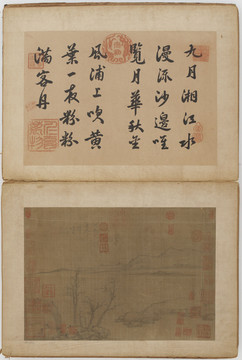 九月湘江水
漫流沙邊唯
覽月華秋金
風浦上吹黃
葉一夜紛紛
滿客舟